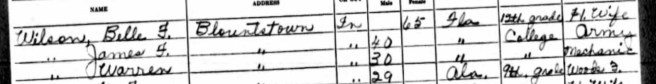 NAME ADDRESS Male Female
Wilson, Belle F. Blountstown In 65 Fla 12th grade H. Wife
" James F. " " 40 " College Army
" Warren " " 30 " " Mechanic
" " 29 Ala. 9th. grade Works F.